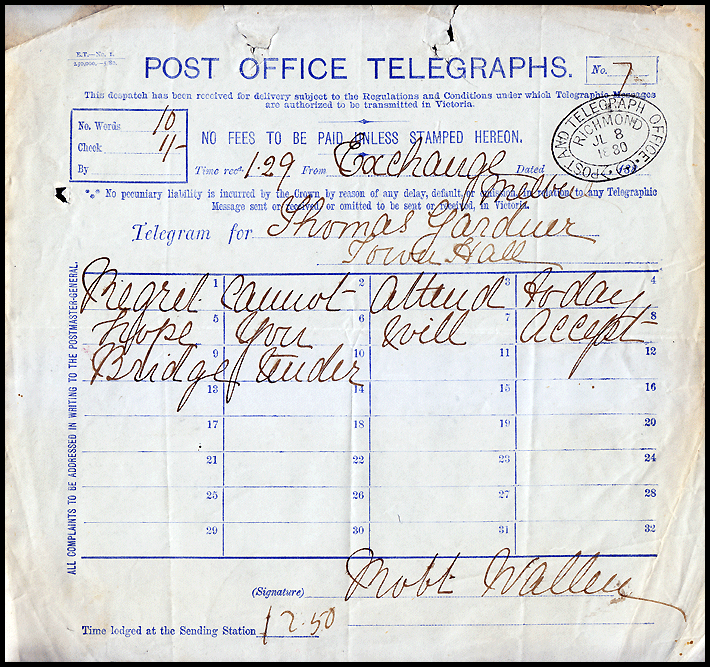 E.T.—No. 1.
POST OFFICE TELEGRAPHS.
No. 7
This despatch has been received for delivery subject to the Regulations and Conditions under which Telegraphic Messages
are authorized to be transmitted in Victoria.
No. Words 10
Check 1/-
By
NO FEES TO BE PAID UNLESS STAMPED HEREON.
POST AND TELEGRAPH OFFICE
RICHMOND
JL 8
1880
Time recd. 1.29 From Exchange Dated
*** No pecuniary liability is incurred by the Crown by reason of any delay, default, or omission, in relation to any Telegraphic
Message sent or received, or omitted to be sent or received, in Victoria.
Telegram for Thomas Gardner
Town Hall
ALL COMPLAINTS TO BE ADDRESSED IN WRITING TO THE POSTMASTER-GENERAL.
1 2 3 4
Regret cannot attend today
5 6 7 8
hope you will accept
9 10 11 12
Bridge tender
13 14 15 16
17 18 19 20
21 22 23 24
25 26 27 28
29 30 31 32
(Signature) Robt Wallen
Time lodged at the Sending Station 12.50